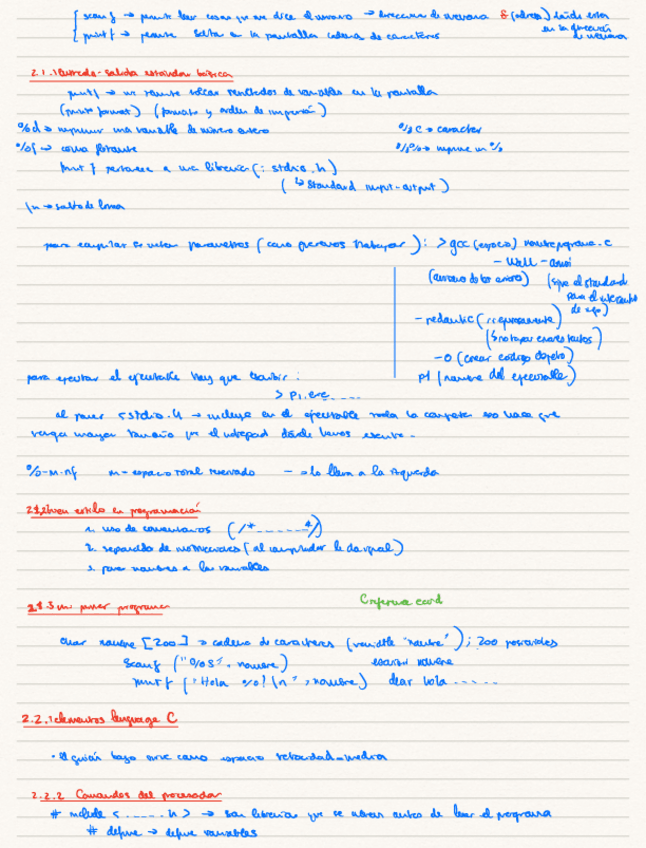 scanf → permite leer cosas que nos dice el usuario → dirección de memoria & (adress) dónde está
en la dirección
de memoria
printf → permite en la pantalla cadena de caracteres
2.1.1 Entrada-salida estándar básica
printf → nos permite resultados de variables en la pantalla
(print format) (formato y orden de impresión)
%d → imprimir una variable de número entero %c → caracter
%f → coma flotante %% → imprime un %
printf pertenece a una librería (: stdio.h)
(↳ standard input-output)
\n → salto de línea
para compilar se usan parámetros (como queremos trabajar): > gcc (espacio) nombreprograma.c
- Wall - ansi
(errores) (sigue el standard
para el
- pedantic (rigurosamente)
- o (crear código objeto)
p1 (nombre del ejecutable)
para ejecutar el ejecutable hay que escribir:
> p1.exe
al poner <stdio.h → incluye en el ejecutable toda la carpeta eso hace que
tenga mayor tamaño que el notepad dónde hemos escrito.
%-m.nf m - espacio total reservado - → lo lleva a la izquierda
estilo en programación
1. uso de comentarios (/* ------ */)
2. separado de (al compilador le da igual)
3. poner nombres a las variables
primer programa
Creference card
char nombre [200] → cadena de caracteres (variable "nombre"); 200 posiciones
scanf ("%s", nombre) escribir nombre
printf ("Hola %! \n", nombre) dear hola .....
2.2.1 elementos lenguage C
· El guión bajo sirve como espacio velocidad_media
2.2.2 Comandos del procesador
# include < ..... h > → son librerías que se antes de leer el programa
# define → define variables